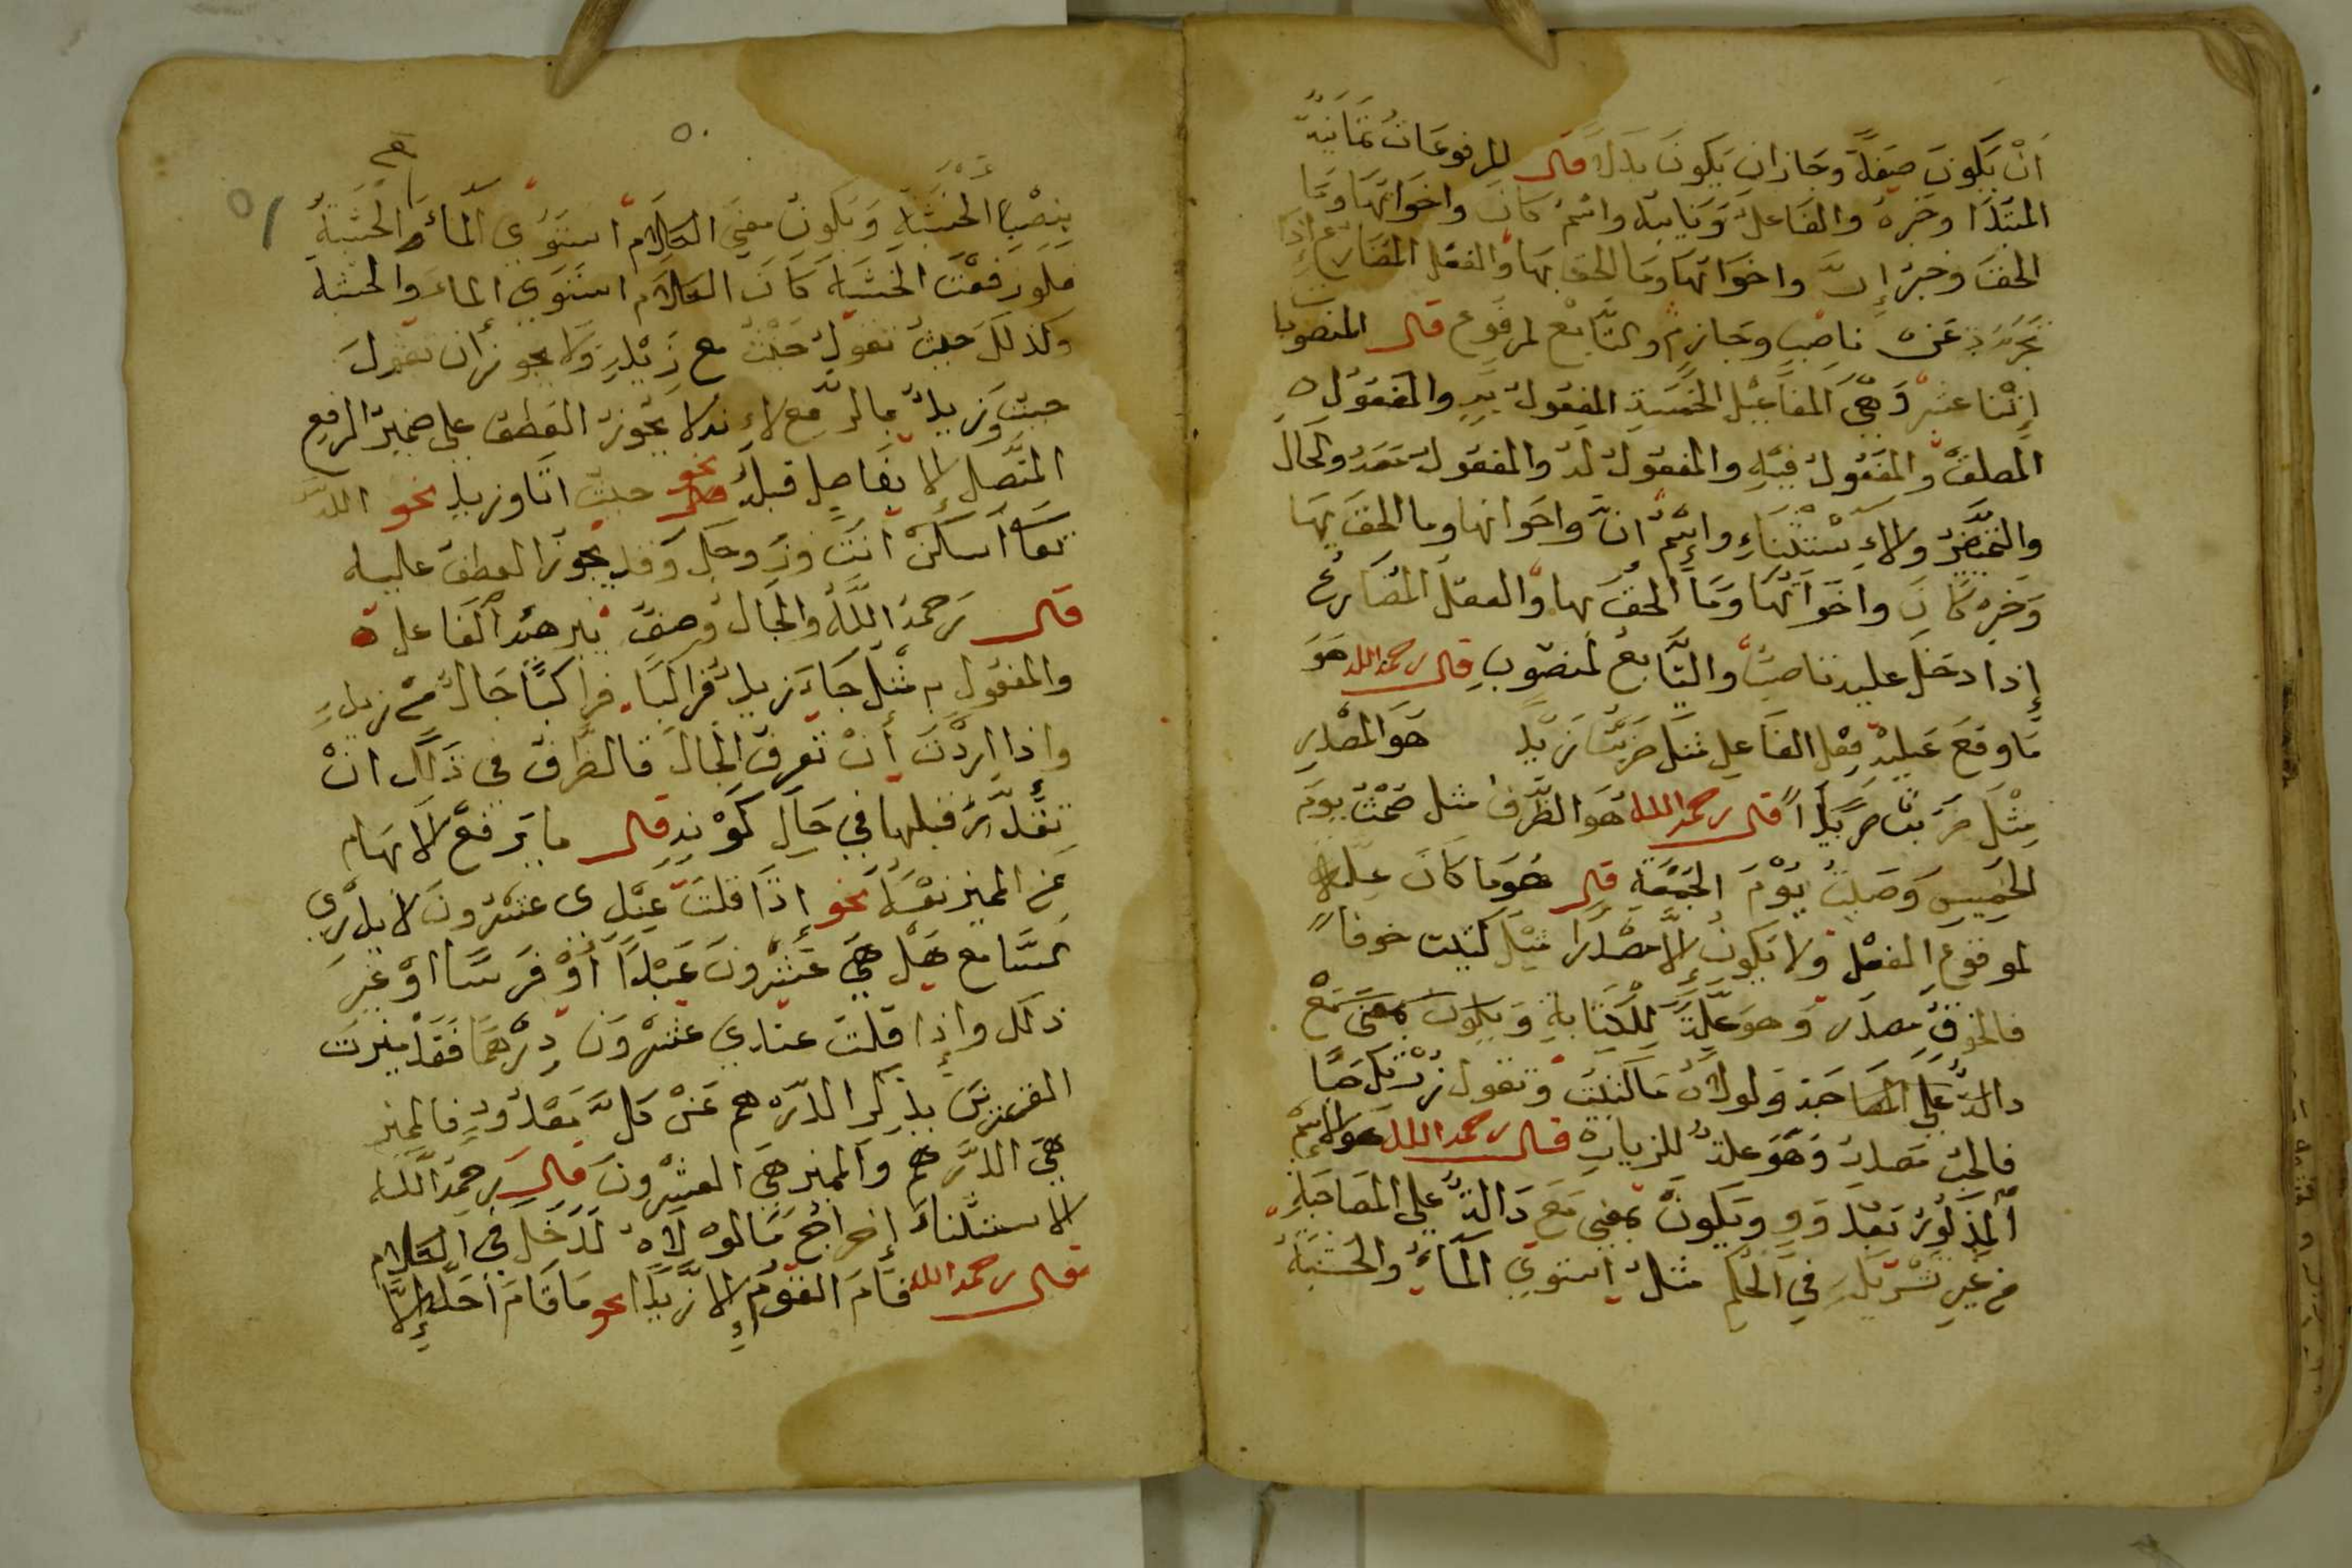 أَنْ يَكُونَ صِفَةً وجَازَ ان يَكُونَ بدَلاً قال المرفوعَات ثمَانِيَة
المبتَدَا وخبره والفَاعلُ وَنَايبه واسْمُ كَانَ واخوَاتهَا ومَا
الحقَ وخبرُ إنَّ واخوَاتهَا ومَا الحقَ بهَا والفعل المضَارع إذَا
تجَرَّدَ عَنْ ناصِبٍ وجَازِمٍ والتَّابعُ لمرفُوعٍ قال المنصوبات
إثنَا عشر وَهِيَ المفَاعيل الخمسَة المفعُولُ بِهِ والمفعُول
المطلقُ والمفعُولُ فيْهِ والمفعُولُ لَهُ والمفعُولُ مَعَهُ والحَالُ
والتمييز والاِسْتِثْنَاءِ واسْمُ انَّ واخواتها وما الحقَ بهَا
وَخبرِ كَانَ واخوَاتهَا وَمَا الحقَ بهَا والفعلُ المُضَارعُ
إذا دخَلَ عليه نَاصِبٌ والتَّابعُ لمنصُوبٍ قال رحمه الله هوَ
مَا وقعَ عَليْهِ فِعْل الفَاعِلِ مثل ضرَبْتُ زَيْداً هوَ المَصْدر
مِثْلَ ضرَبتُ ضرْباً قال رحمه الله هُوَ الظَّرفُ مثل صُمْتُ يومَ
الخَمِيسِ وَصَليتُ يَوْمَ الجُمْعَةِ قال هُوَ مَا كَانَ علّة
لوقوعِ الفعْل ولا يَكونُ إلاَّ مَصْدَراً مثل كتبت خوفاً
فالخوفُ مصدَر وَهوَ علَّةٌ لِلْكِتَابَةِ وَيَكُون بمعْنى مَعْ
دالَّة عَلَى المصَاحَبة وَلولاَهُ مَا كَتَبْتُ وَتقول زُرْتكَ حبًّا
فالحبّ مَصدرٌ وَهوَ علة للزيارة قال رحمه الله هو الاسْمُ
المذكُورُ بَعْدَ وَاوٍ ويَكُونُ بمعْنى مَعَ دَالَّةٌ على المصَاحَبةِ
من غَيرِ تَشْرِيكٍ فِي الحُكْمِ مثلُ استوي المَاءُ والخَشَبَةَ
٥٠
٥١
بنصْبِ الخَشَبَةِ وَيكُونُ معْنَى الكَلاَم استَوَى المَاءُ مع الخَشَبَةُ
فلو رَفعْتَ الخَشَبَةَ كَانَ الكَلاَم استَوَى الماءَ والخَشَبَة
وكَذلكَ حَيثُ تقُولُ جئْت مع زَيْدٍ وَلا يجوز أن تقولَ
جئت وَزيدٌ بالرَّفع لاِنه لا يَجُوزُ العَطفُ على ضمير الرفع
المتَّصِل إلا بفَاصِل قبلهُ نحو جئتُ انَا وزيد نحو اللَّه
تعَالَى اسْكُنْ أَنتَ وَزَوجكَ وَقد يجوز العطفُ عليه
قال رحمهُ اللَّهُ والحَالُ وَصفٌ يبين هيئة الفَاعل
والمفعُولِ به مثل جَاءَ زيدٌ رَاكباً فرَاكبًا حَالٌ من زيدٍ
واذا اردْتَ أَنْ تعرفَ الحَالَ فالطَّرِق في ذَلكَ انْ
تقَدِّرَ قبلهَا فِي حَالِ كَوْنِهِ قال ما يَرفعُ الاَبهام
عَنِ المميز نفسهُ نحو إذَا قلتَ عِنْدِي عشْرُونَ لا يدْري
السَّامع هَلْ هِيَ عشْرُونَ عَبْداً أوْ فرَسًا اوْ غير
ذلك وإذا قلتَ عندي عشْرُونَ دِرْهَمًا فَقَدْ ميزتَ
العشرين بذِكْر الدّرهم عَنْ كُلِّ مَعْدُودٍ فالمميز
هيَ الدّرهم وَالمميز هيَ العشرُونَ قَالَ رحمهُ اللَّه
الاستثنَاءُ إخراجُ مَا لَوْلاَهُ لَدَخَل في الكلام
قال رحمه الله قَامَ القَوْمُ إلا زَيدًا نحو مَا قَامَ أَحَدٌ إلاَّ